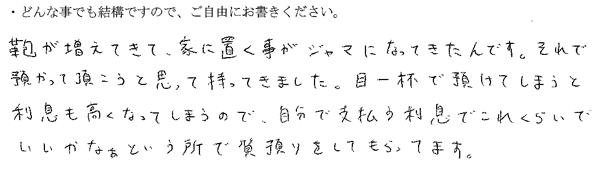 ・どんな事でも結構ですので、ご自由にお書きください。
鞄が増えてきて、家に置く事がジャマになってきたんです。それで
預かって頂こうと思って持ってきました。目一杯で預けてしまうと
利息も高くなってしまうので、自分で支払う利息でこれくらいで
いいかなぁという所で質預りをしてもらってます。